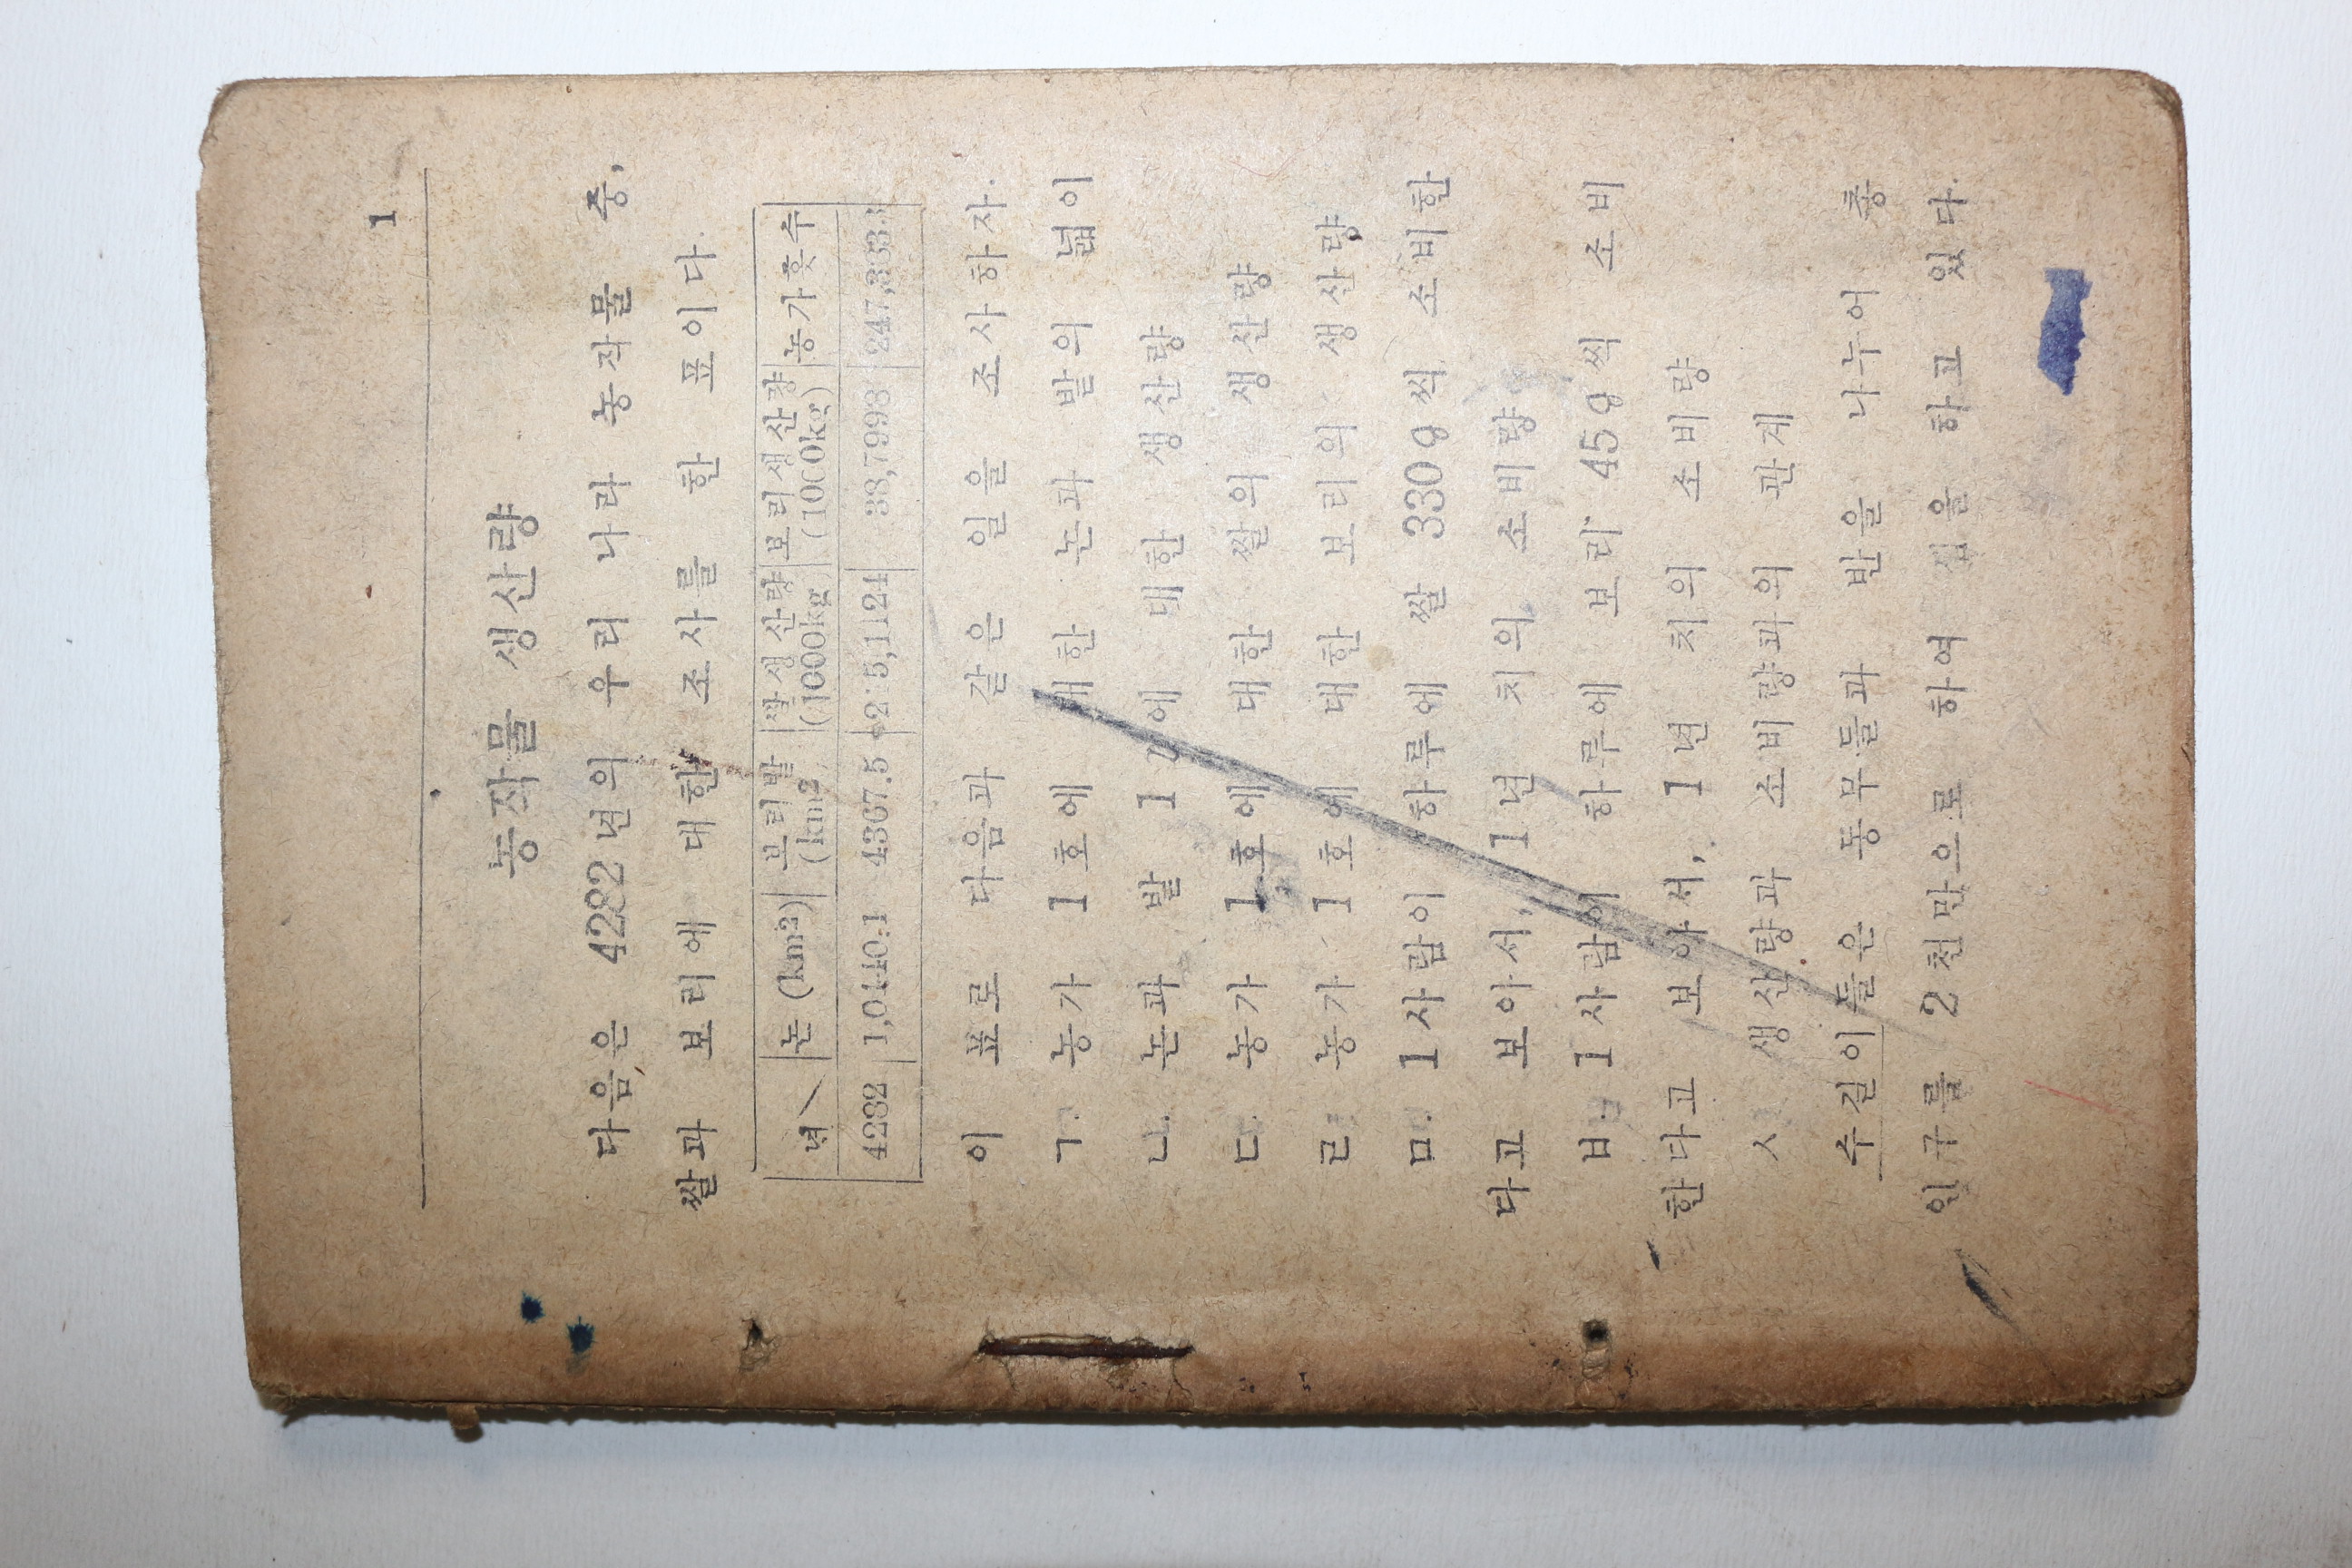 1
농작물 생산량
다음은 4282년의 우리 나라 농작물 중,
쌀과 보리에 대한 조사를 한 표이다.
년 논 (km2) 보리밭 (km2 쌀생산량 (1000kg) 보리생산량 (1000kg) 농가홋수
4282 4367.5
이 표로 다음과 같은 일을 조사하자.
ㄱ. 농가 1호에 대한 논과 밭의 넓이
ㄴ. 논과 밭 1 에 대한 생산량
ㄷ. 농가 1호에 대한 쌀의 생산량
ㄹ 농가 1호에 대한 보리의 생산량
ㅁ. 1사람이 하루에 쌀 330g씩 소비한
다고 보아서, 1년 치의 소비량
ㅂ. 1사람이 하루에 보리 45g씩 소비
한다고 보아서, 1년 치의 소비량
ㅅ 생산량과 소비량과의 관계
수길이들은 동무들과 반을 나누어 총
인구를 2천만으로 하여 셈을 하고 있다.